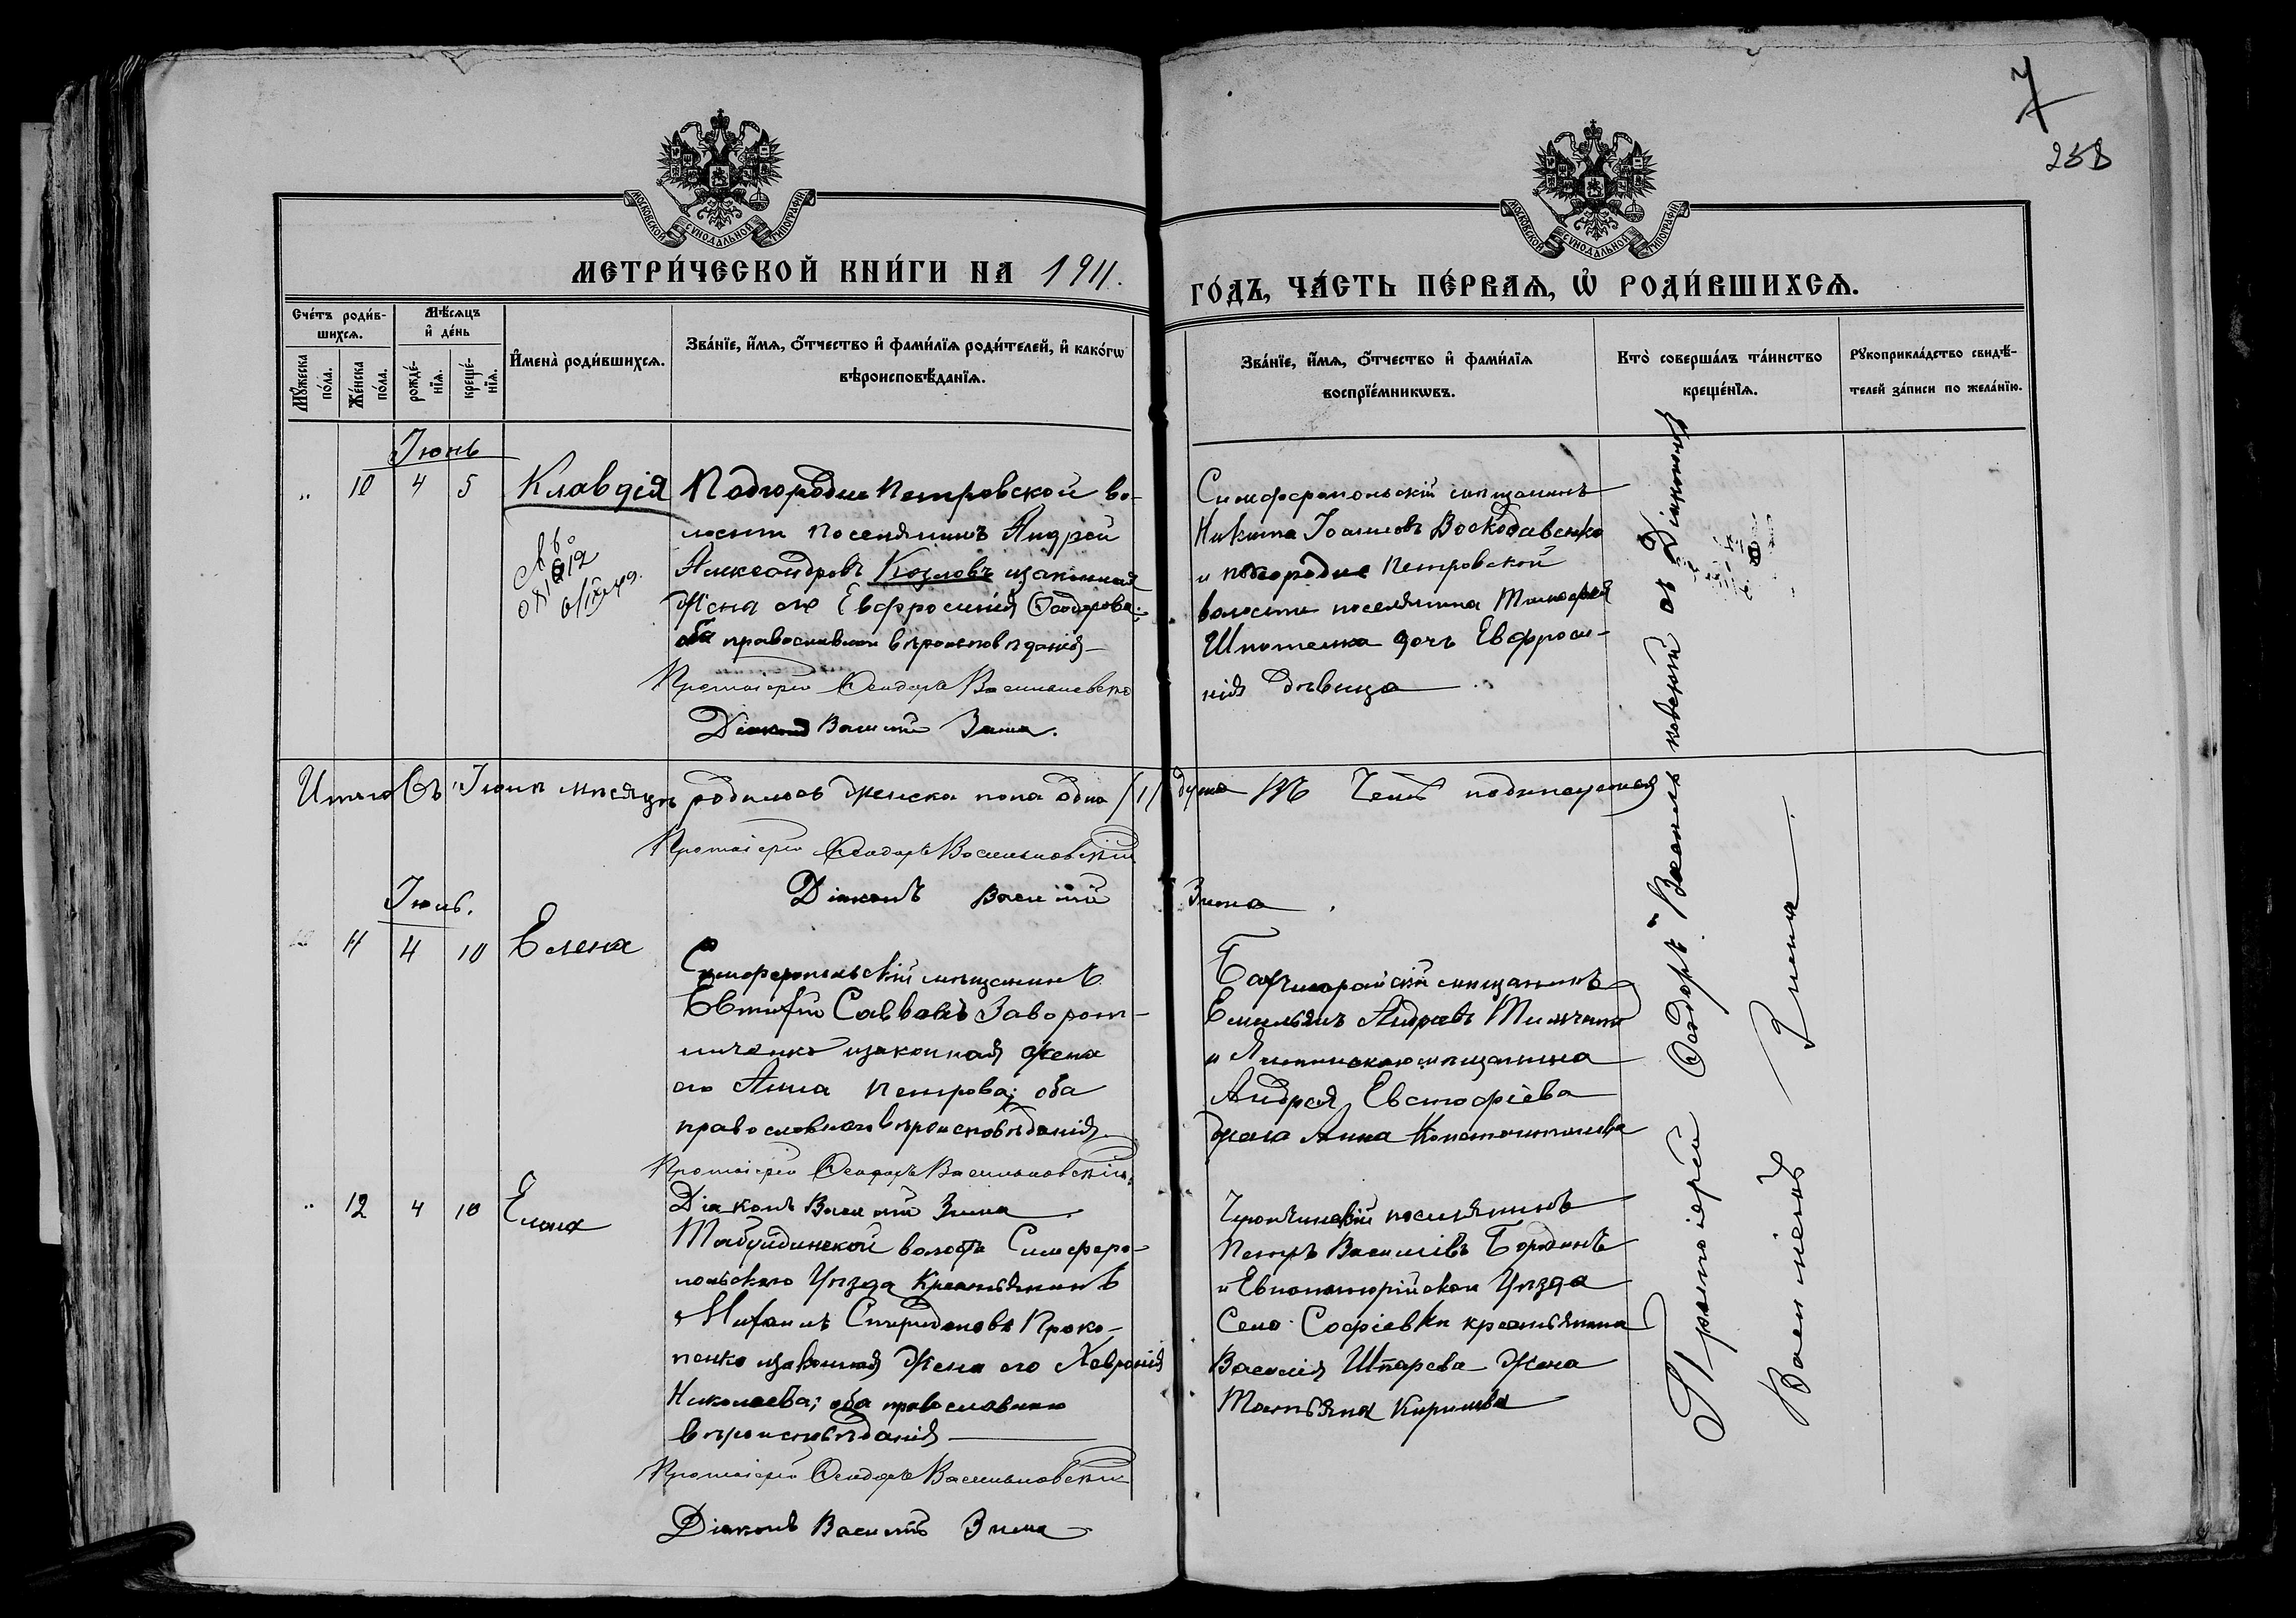 7
258
МОСКОВСКОЙ СУНОДАЛЬНОЙ ТИПОГРАФІИ
МОСКОВСКОЙ СУНОДАЛЬНОЙ ТИПОГРАФІИ
МЕТРИ́ЧЕСКОЙ КНИ́ГИ НА 1911.
ГО́ДЪ, ЧА́СТЬ ПЕ́РВАѦ, Ѡ҆ РОДИ́ВШИХСѦ.
Сче́тъ роди́в-
шихсѧ.
Мꙋ́жеска по́ла.
Же́нска по́ла.
Мѣ́сѧцъ
и҆ де́нь
рожде́-
нїѧ.
креще́-
нїѧ.
И҆мена̀ роди́вшихсѧ.
Зва́нїе, и҆́мѧ, ѻ҆́тчество и҆ фами́лїѧ роди́телей, и҆ како́гѡ
вѣроисповѣ́данїѧ.
Зва́нїе, и҆́мѧ, ѻ҆́тчество и҆ фами́лїѧ
воспрїе́мникѡвъ.
Кто̀ соверша́лъ та́инство
креще́нїѧ.
Рꙋкоприкла́дство свидѣ́-
телей за́писи по жела́нїю.
Іюнь
" 10 4 5 Клавдія
Подгородне Петровской во-
лости поселянинъ Андрей
Александровъ Козловъ изаконная
жена его Евфросинія Ѳеодорова;
оба православнаго вѣроисповѣданія
Протоіерей Ѳеодоръ Васильковскій
Діаконъ Василій Зима.
Симферопольскій мѣщанинъ
Никита Іоанновъ
и подгородне Петровской
волости поселянина Тимофея
дочь Евфроси-
нія дѣвица
Итого Въ Іюнѣ мѣсяцѣ родилось женска пола одна /1/ душа Въ Чемъ подписуемся
Протоіерей Ѳеодоръ Васильковскій
Діаконъ Василій Зима.
Іюль.
11 4 10 Елена
Симферопольскій мѣщанинъ
Евтихій Саввовъ Заворот-
ниченко изаконная жена
его Анна Петрова; оба
православнаго вѣроисповѣданія
Протоіерей Ѳеодоръ Васильковскій
Діаконъ Василій Зима
Бахчисарайскій мѣщанинъ
Емельянъ Андреевъ
и Ялтинскаго мѣщанина
Андрея Евстафіева
жена Анна Константинова
" 12 4 10 Елена
Табулдинской волости Симферо-
польскаго Уѣзда Крестьянинъ
Михаилъ Спиридоновъ Проко-
пенко изаконная жена его Хавронія
Николаева; оба православнаго
вѣроисповѣданія
Протоіерей Ѳеодоръ Васильковскій
Діаконъ Василій Зима
поселянинъ
Петръ Василіевъ Бородинъ
и Евпаторійскаго Уѣзда
Село Софіевки крестьянина
Василія жена
Татьяна Кирилова
Протоіерей Ѳеодоръ Васильковскій съ Діакономъ
Василіемъ Зимою